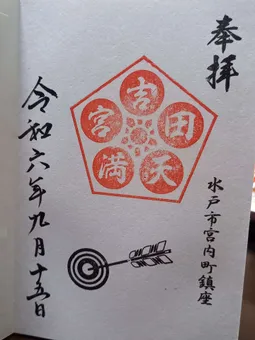 奉拝
吉田天満宮
水戸市宮内町鎮座
令和六年九月十五日